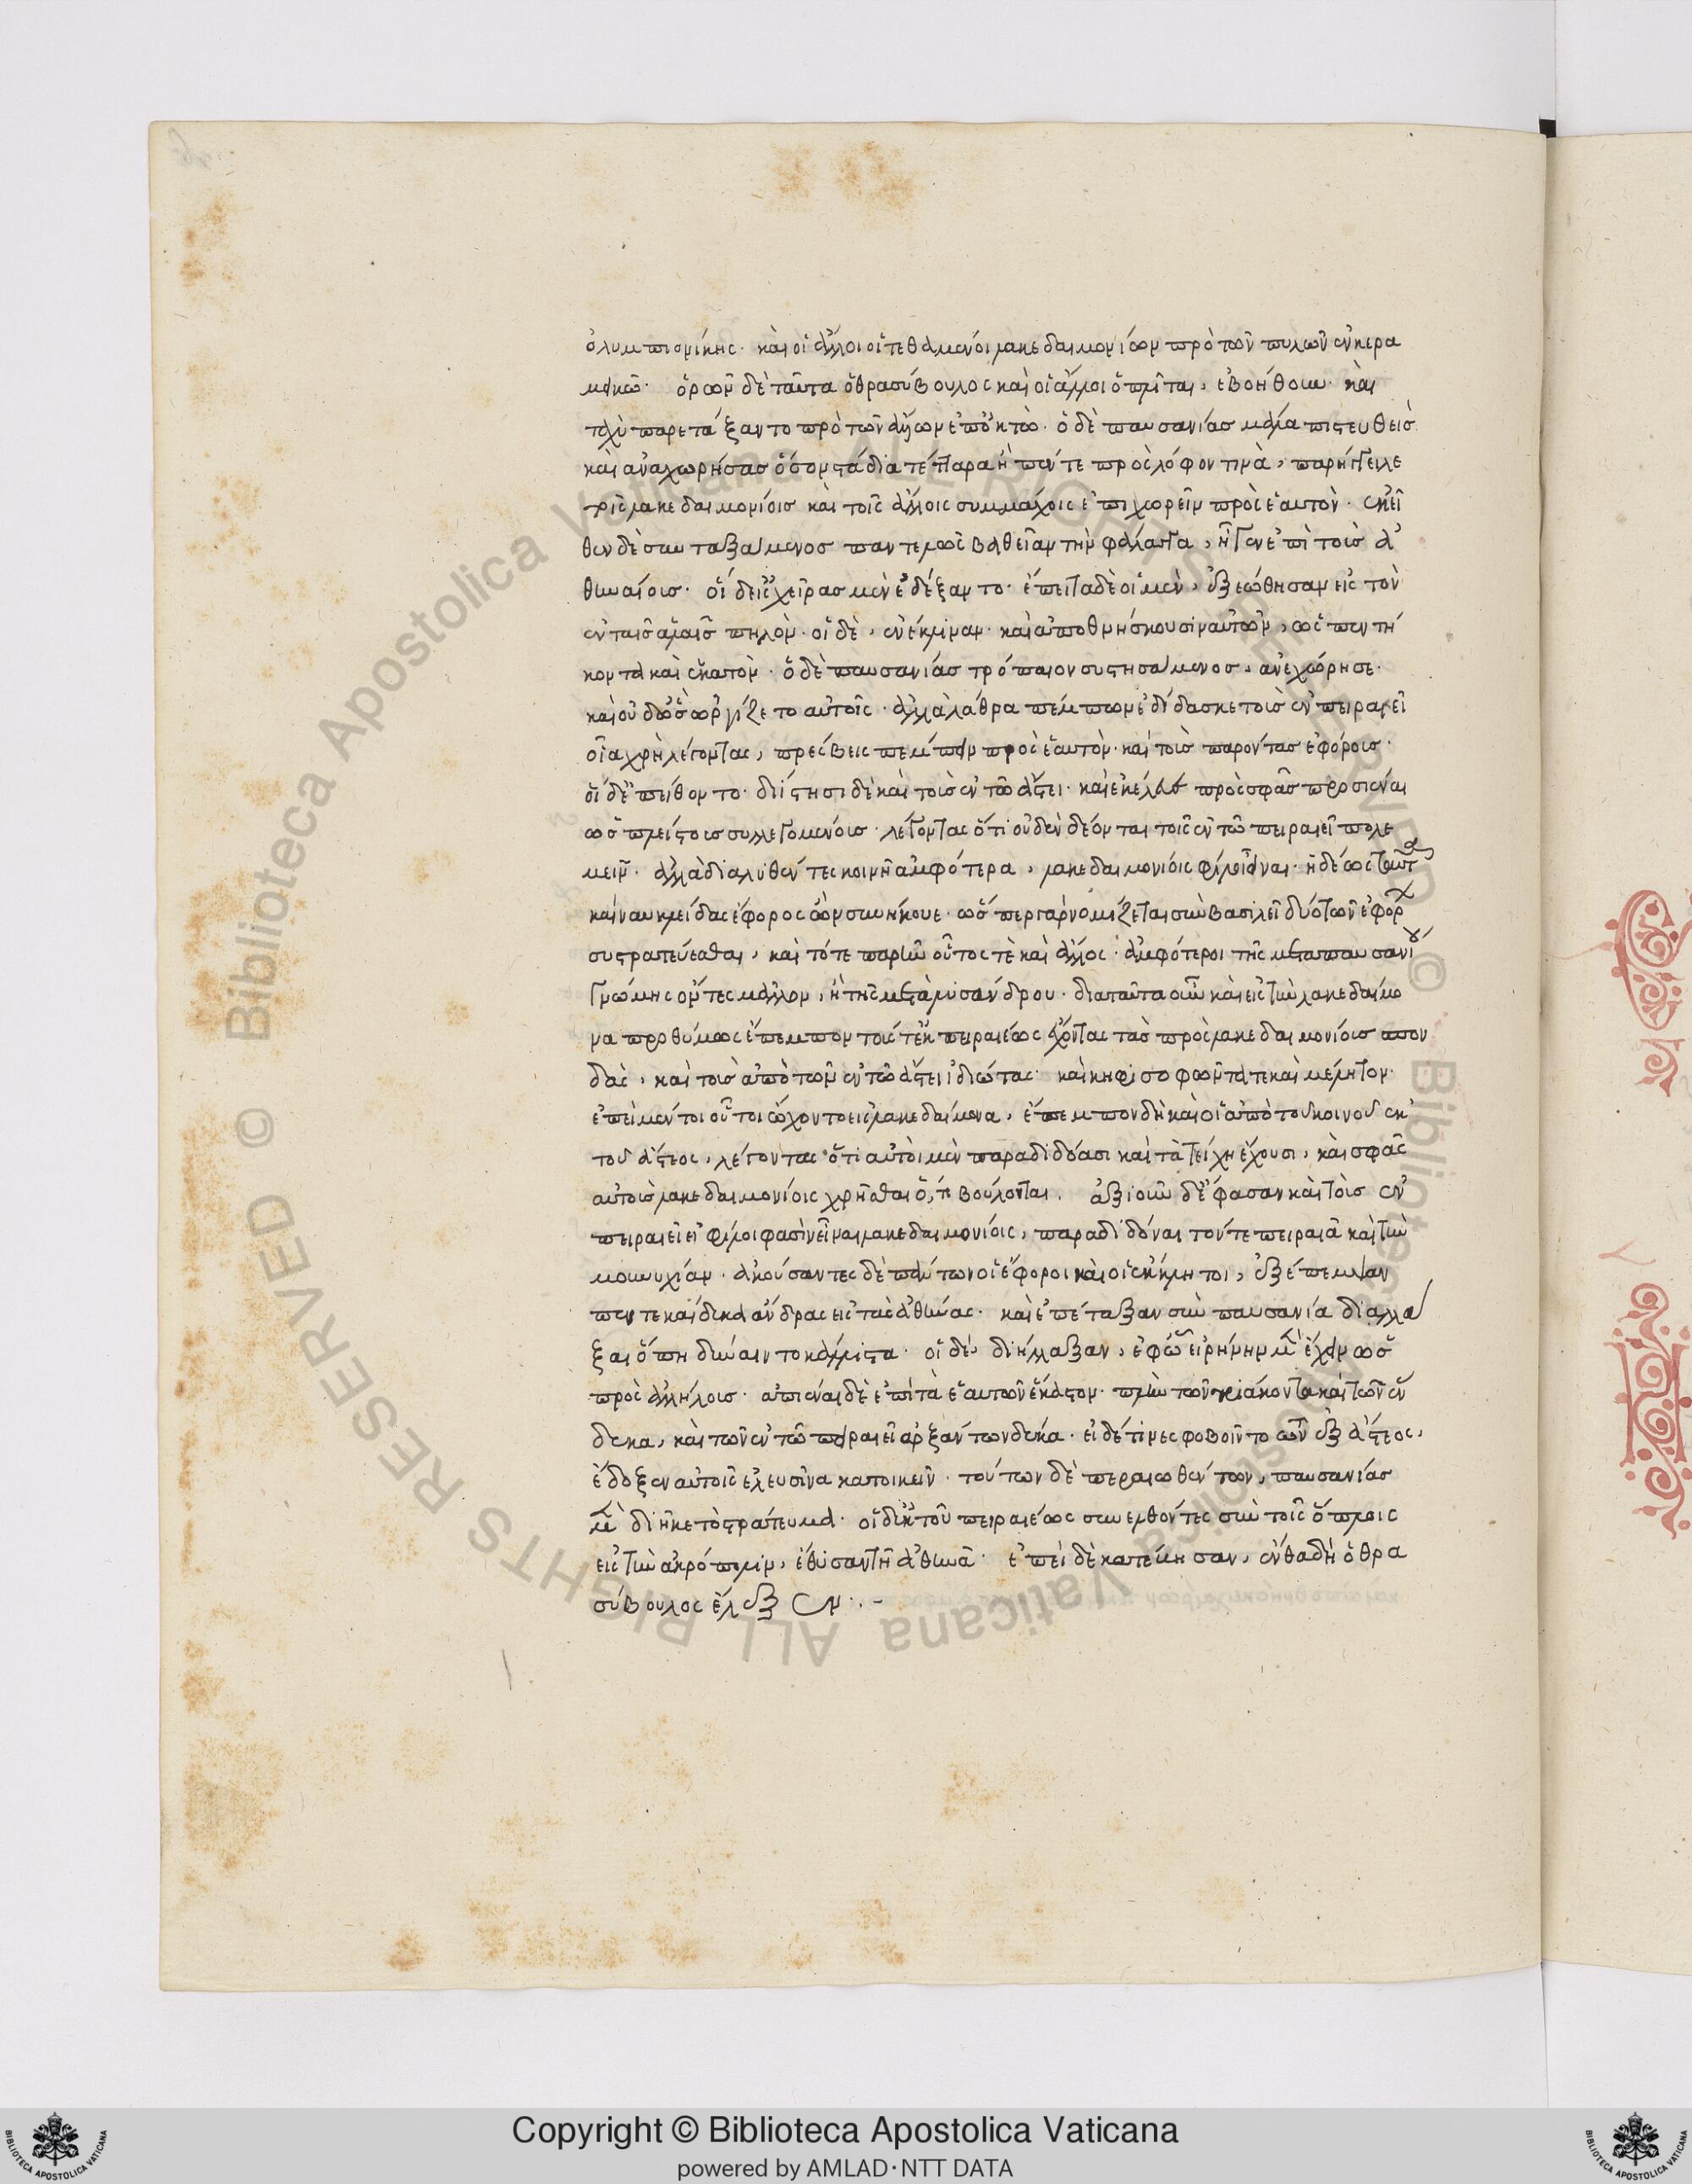 ὀλυμπιονίκης. καὶ οἱ ἄλλοι οἱ τεθαμμένοι λακεδαιμονίων πρὸ τῶν πυλῶν ἐν κερα
μεικῶ. ὁρῶν δὲ ταῦτα ὁ θρασύβουλος καὶ οἱ ἄλλοι ὁπλῖται, ἐβοήθουν. καὶ
ταχὺ παρετάξαντο πρὸ τῶν ἄλλων ἐπ' ὀκτὼ. ὁ δὲ παυσανίας μάλα πιεσθεὶς
καὶ ἀναχωρήσας ὅσον στάδια τέτταρα ἢ πέντε πρὸς λόφον τινὰ, παρήγγειλε
τοῖς λακεδαιμονίοις καὶ τοῖς ἄλλοις συμμάχοις ἐπιχωρεῖν πρὸς ἑαυτὸν. ἐκεῖ
θεν δὲ συνταξάμενος παντελῶς βαθεῖαν τὴν φάλαγγα, ἦγεν ἐπὶ τοὺς ἀ
θηναίους. οἱ δ' εἰς χεῖρας μὲν ἐδέξαντο. ἔπειτα δὲ οἱ μὲν, ἐξεώθησαν εἰς τὸν
ἐν ταῖς ἁλαῖς πηλὸν. οἱ δὲ, ἐνέκλιναν. καὶ ἀποθνήσκουσιν αὐτῶν, ὡς πεντή
κοντα καὶ ἑκατὸν. ὁ δὲ παυσανίας τρόπαιον στησάμενος, ἀνεχώρησε.
καὶ οὐδ' ὣς ὠργίζετο αὐτοῖς. ἀλλὰ λάθρα πέμπων ἐδίδασκε τοὺς ἐν πειραιεῖ
οἷα χρὴ λέγοντας, πρέσβεις πέμπειν πρὸς ἑαυτὸν. καὶ τοὺς παρόντας ἐφόρους.
οἱ δ' ἐπείθοντο. διίστησι δὲ καὶ τοὺς ἐν τῶ ἄστει. καὶ ἐκέλευε πρὸς σφᾶς προσιέναι
ὡς πλείστους συλλεγομένους. λέγοντας ὅτι οὐδὲν δέονται τοῖς ἐν τῶ πειραιεῖ πολε
μεῖν. ἀλλὰ διαλυθέντες κοινῇ ἀμφότεροι, λακεδαιμονίοις φίλοι εἶναι. ἡδέως ταῦτα
καὶ ναυκλείδας ἔφορος ὢν συνήκουε. ὥσπερ γὰρ νομίζεται σὺν βασιλεῖ δύο τῶν ἐφόρων
συστρατεύεσθαι, καὶ τότε παρῆν οὗτός τε καὶ ἄλλος. ἀμφότεροι τῆς μετὰ παυσανίου
γνώμης ὄντες μᾶλλον, ἢ τῆς μετὰ λυσάνδρου. διὰ ταῦτα οὖν καὶ εἰς τὴν λακεδαίμο
να προθύμως ἔπεμπον τούς τ' ἐκ πειραιέως ἔχοντας τὰς πρὸς λακεδαιμονίους σπον
δὰς, καὶ τοὺς ἀπὸ τῶν ἐν τῶ ἄστει ἰδιώτας. καὶ κηφισοφῶντά τε καὶ μέλητον.
ἐπεὶ μέντοι οὗτοι ὤχοντο εἰς λακεδαίμονα, ἔπεμπον δὴ καὶ οἱ ἀπὸ τοῦ κοινοῦ ἐκ
τοῦ ἄστεος, λέγοντας ὅτι αὐτοὶ μὲν παραδιδόασι καὶ τὰ τείχη ἃ ἔχουσι, καὶ σφᾶς
αὐτοὺς λακεδαιμονίοις χρῆσθαι ὅ,τι βούλονται. ἀξιοῦν δ' ἔφασαν καὶ τοὺς ἐν
πειραιεῖ εἰ φίλοι φασὶν εἶναι λακεδαιμονίοις, παραδιδόναι τόν τε πειραιᾶ καὶ τὴν
μουνυχίαν. ἀκούσαντες δὲ πάντων οἱ ἔφοροι καὶ οἱ ἔκκλητοι, ἐξέπεμψαν
πεντεκαίδεκα ἄνδρας εἰς τὰς ἀθήνας. καὶ ἐπέταξαν σὺν παυσανία διαλλά
ξαι ὅπη δύναιντο κάλλιστα. οἱ δὲ, διήλλαξαν, ἐφ' ᾧ εἰρήνην μὲν ἔχειν ὡς
πρὸς ἀλλήλους. ἀπιέναι δὲ ἐπὶ τὰ ἑαυτῶν ἕκαστον. πλὴν τῶν τριάκοντα καὶ τῶν ἕν
δεκα, καὶ τῶν ἐν τῶ πειραιεῖ ἀρξάντων δέκα. εἰ δέ τινες φοβοῖντο τῶν ἐξ ἄστεος,
ἔδοξεν αὐτοῖς ἐλευσῖνα κατοικεῖν. τούτων δὲ περαιωθέντων, παυσανίας
μὲν διῆκε τὸ στράτευμα. οἱ δ' ἐκ τοῦ πειραιέως συνελθόντες σὺν τοῖς ὅπλοις
εἰς τὴν ἀκρόπολιν, ἔθυσαν τῇ ἀθηνᾶ. ἐπεὶ δὲ κατέβησαν, ἔνθα δὴ ὁ θρα
σύβουλος ἔλεξεν.
Copyright © Biblioteca Apostolica Vaticana
powered by AMLAD·NTT DATA